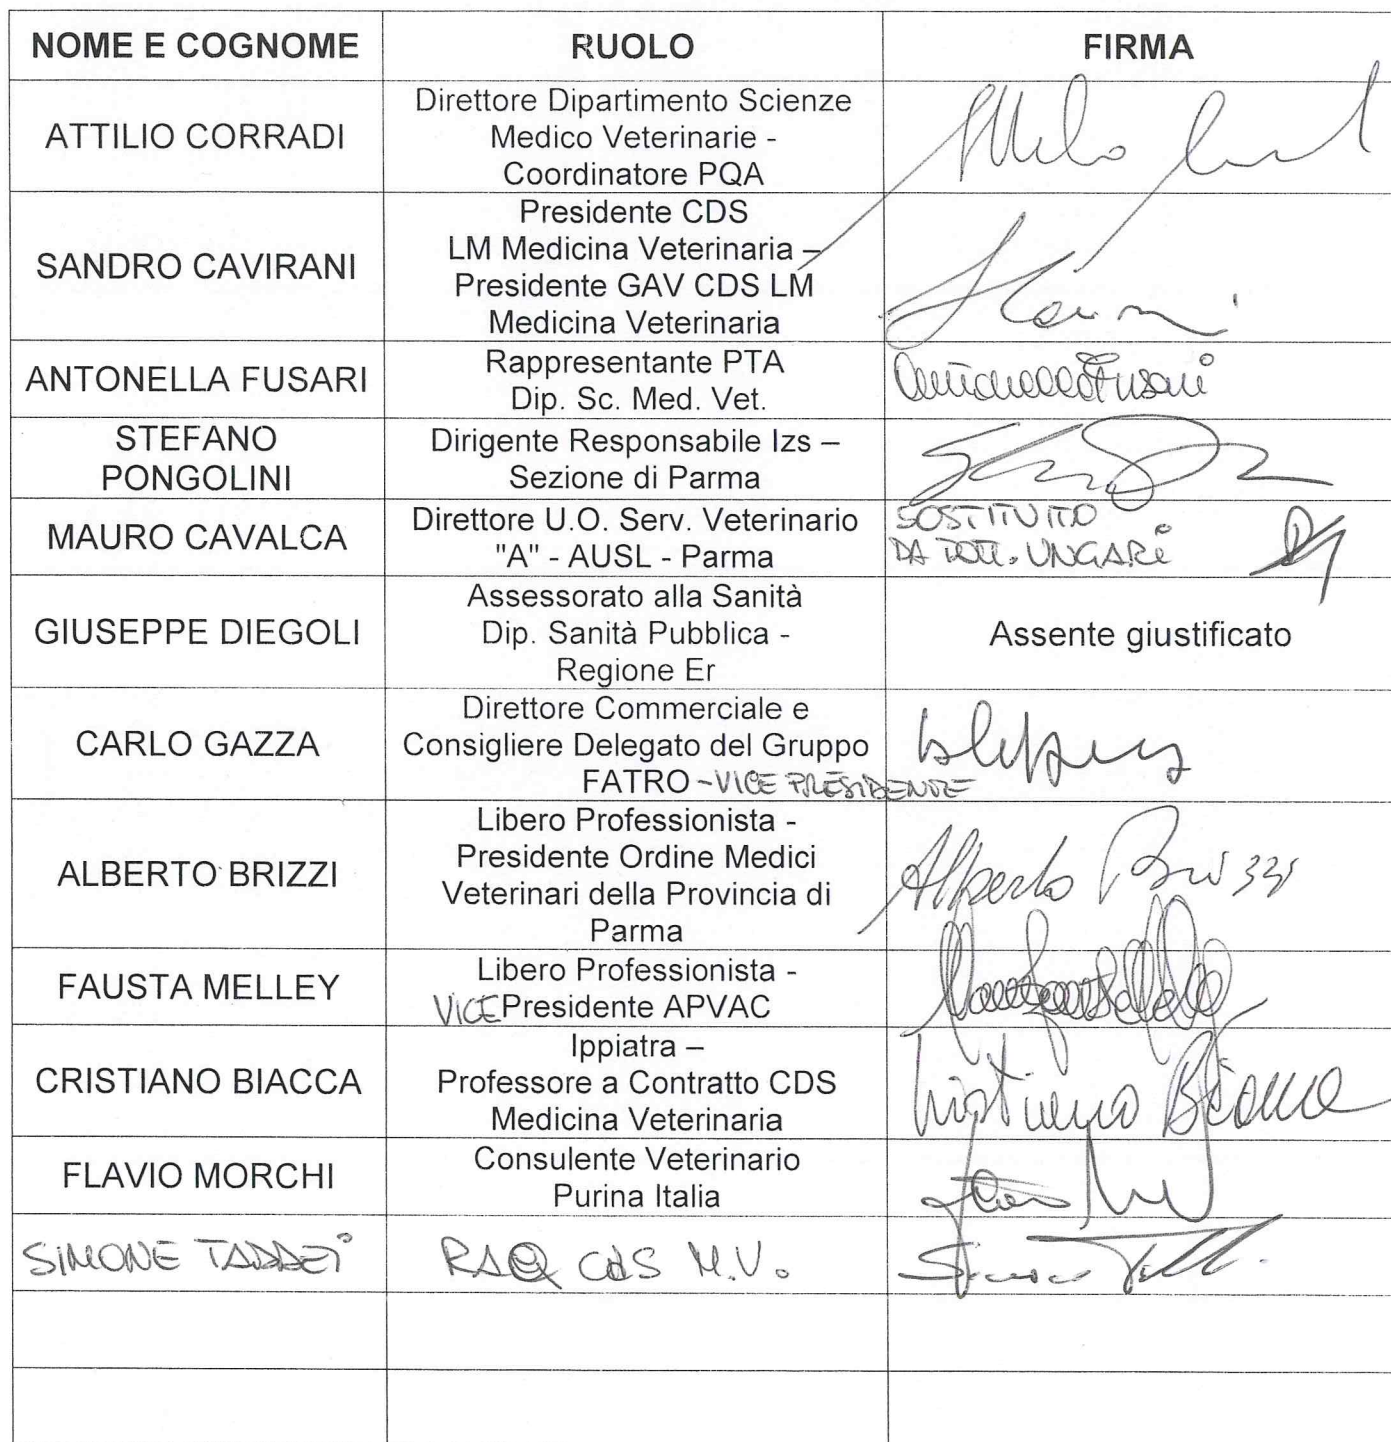 NOME E COGNOME RUOLO FIRMA
ATTILIO CORRADI
Direttore Dipartimento Scienze
Medico Veterinarie -
Coordinatore PQA
SANDRO CAVIRANI
Presidente CDS
LM Medicina Veterinaria –
Presidente GAV CDS LM
Medicina Veterinaria
ANTONELLA FUSARI
Rappresentante PTA
Dip. Sc. Med. Vet.
Antonella Fusari
STEFANO
PONGOLINI
Dirigente Responsabile Izs –
Sezione di Parma
MAURO CAVALCA
Direttore U.O. Serv. Veterinario
"A" - AUSL - Parma
SOSTITUITO
DA DOTT. UNGARI
GIUSEPPE DIEGOLI
Assessorato alla Sanità
Dip. Sanità Pubblica -
Regione Er
Assente giustificato
CARLO GAZZA
Direttore Commerciale e
Consigliere Delegato del Gruppo
FATRO - VICE PRESIDENTE
ALBERTO BRIZZI
Libero Professionista -
Presidente Ordine Medici
Veterinari della Provincia di
Parma
Alberto Brizzi
FAUSTA MELLEY
Libero Professionista -
VICE Presidente APVAC
CRISTIANO BIACCA
Ippiatra –
Professore a Contratto CDS
Medicina Veterinaria
Cristiano Biacca
FLAVIO MORCHI
Consulente Veterinario
Purina Italia
SIMONE TADDEI RAQ CdS M.V.